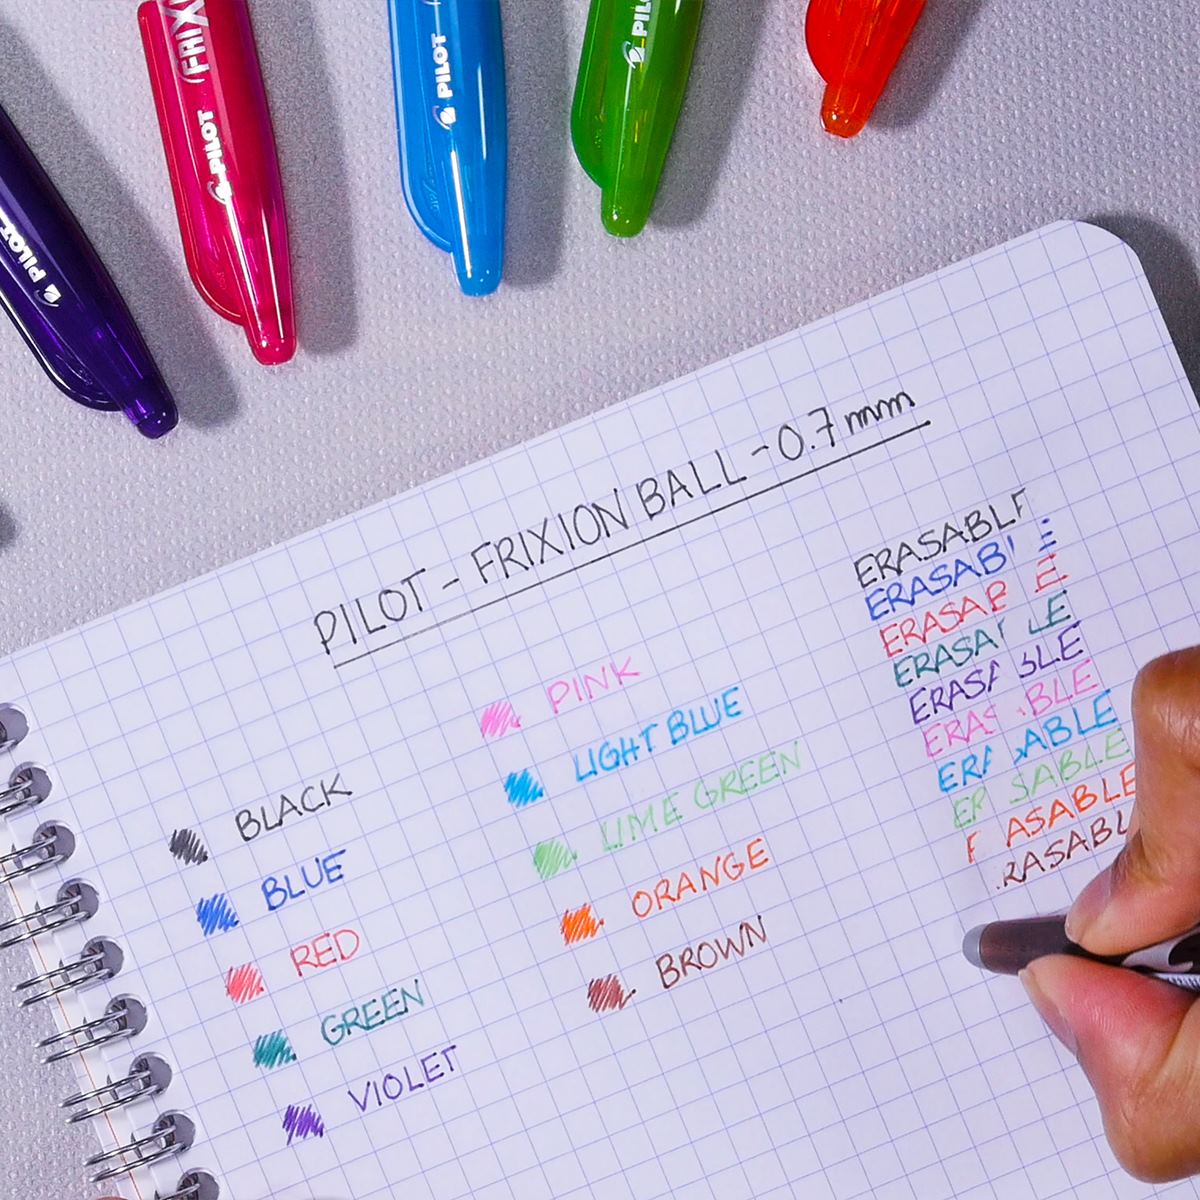 PILOT
FRIX
PILOT
PILOT
PILO
PILOT - FRIXION BALL - 0.7mm
BLACK
BLUE
RED
GREEN
VIOLET
PINK
LIGHT BLUE
LIME GREEN
ORANGE
BROWN
ERASABL
ERASAB E
ERASAB E
ERASA LE
ERAS BLE
ERAS BLE
ERA ABLE
ER SABLE
ASABLE
RASABL